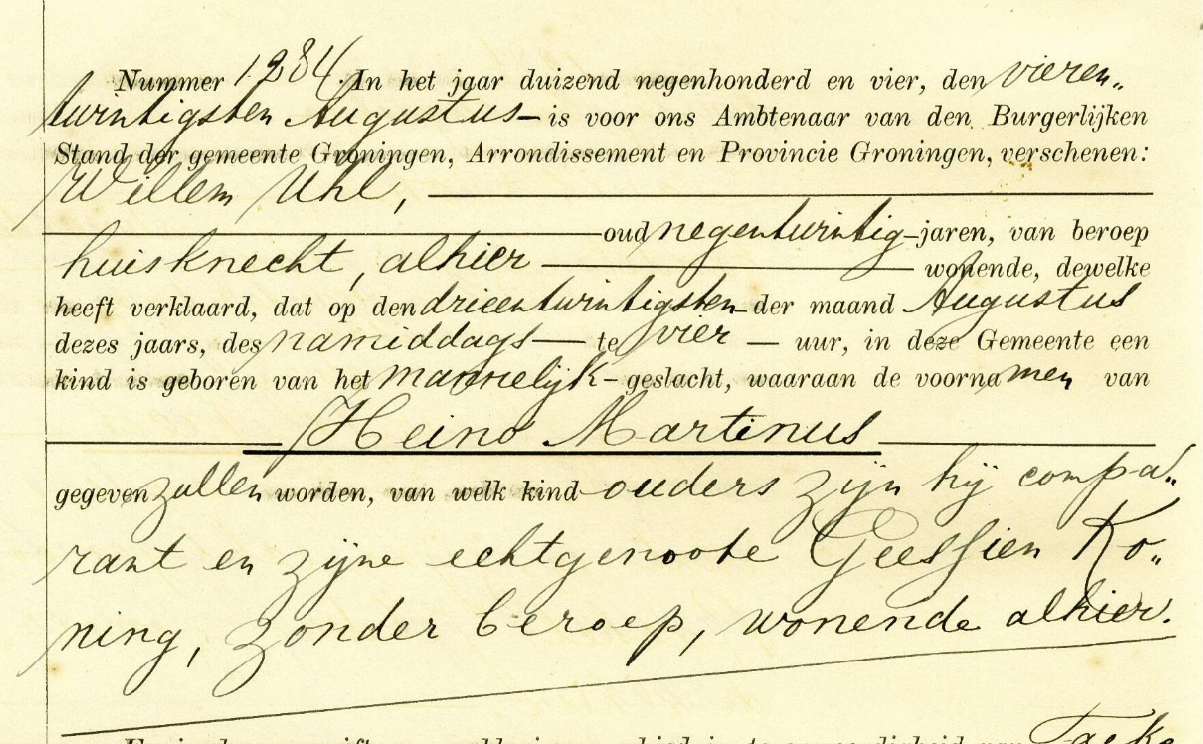 Nummer 1284. In het jaar duizend negenhonderd en vier, den vieren„
twintigsten Augustus — is voor ons Ambtenaar van den Burgerlijken
Stand der gemeente Groningen, Arrondissement en Provincie Groningen, verschenen:
Willem Uhl,
oud negentwintig jaren, van beroep
huisknecht, alhier — wonende, dewelke
heeft verklaard, dat op den drieentwintigsten der maand Augustus
dezes jaars, des namiddags — te vier — uur, in deze Gemeente een
kind is geboren van het mannelijk - geslacht, waaraan de voornamen van
Heino Martinus
gegeven zullen worden, van welk kind ouders zijn hij compa„
rant en zijne echtgenoote Geessien Ko„
ning, zonder beroep, wonende alhier.